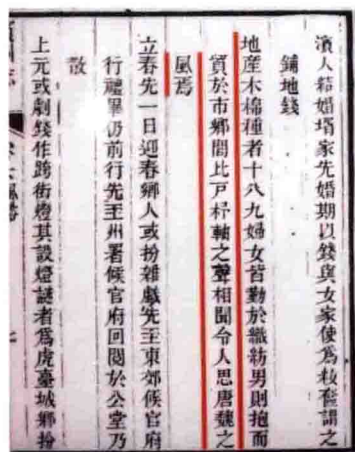 濱人結婚壻家先婚期以錢與女家使爲粧奩謂之
鋪地錢
地産木棉種者十八九婦女皆勤於織紡男則抱而
貿於市鄉閭比戸杼軸之聲相聞令人思唐魏之
風焉
立春先一日迎春鄉人或扮雜戲先至東郊候官府
行禮畢仍前行先至州署候官府回閱於公堂乃
散
上元或剪錢作跨街燈其設燈謎者爲虎臺城鄉扮